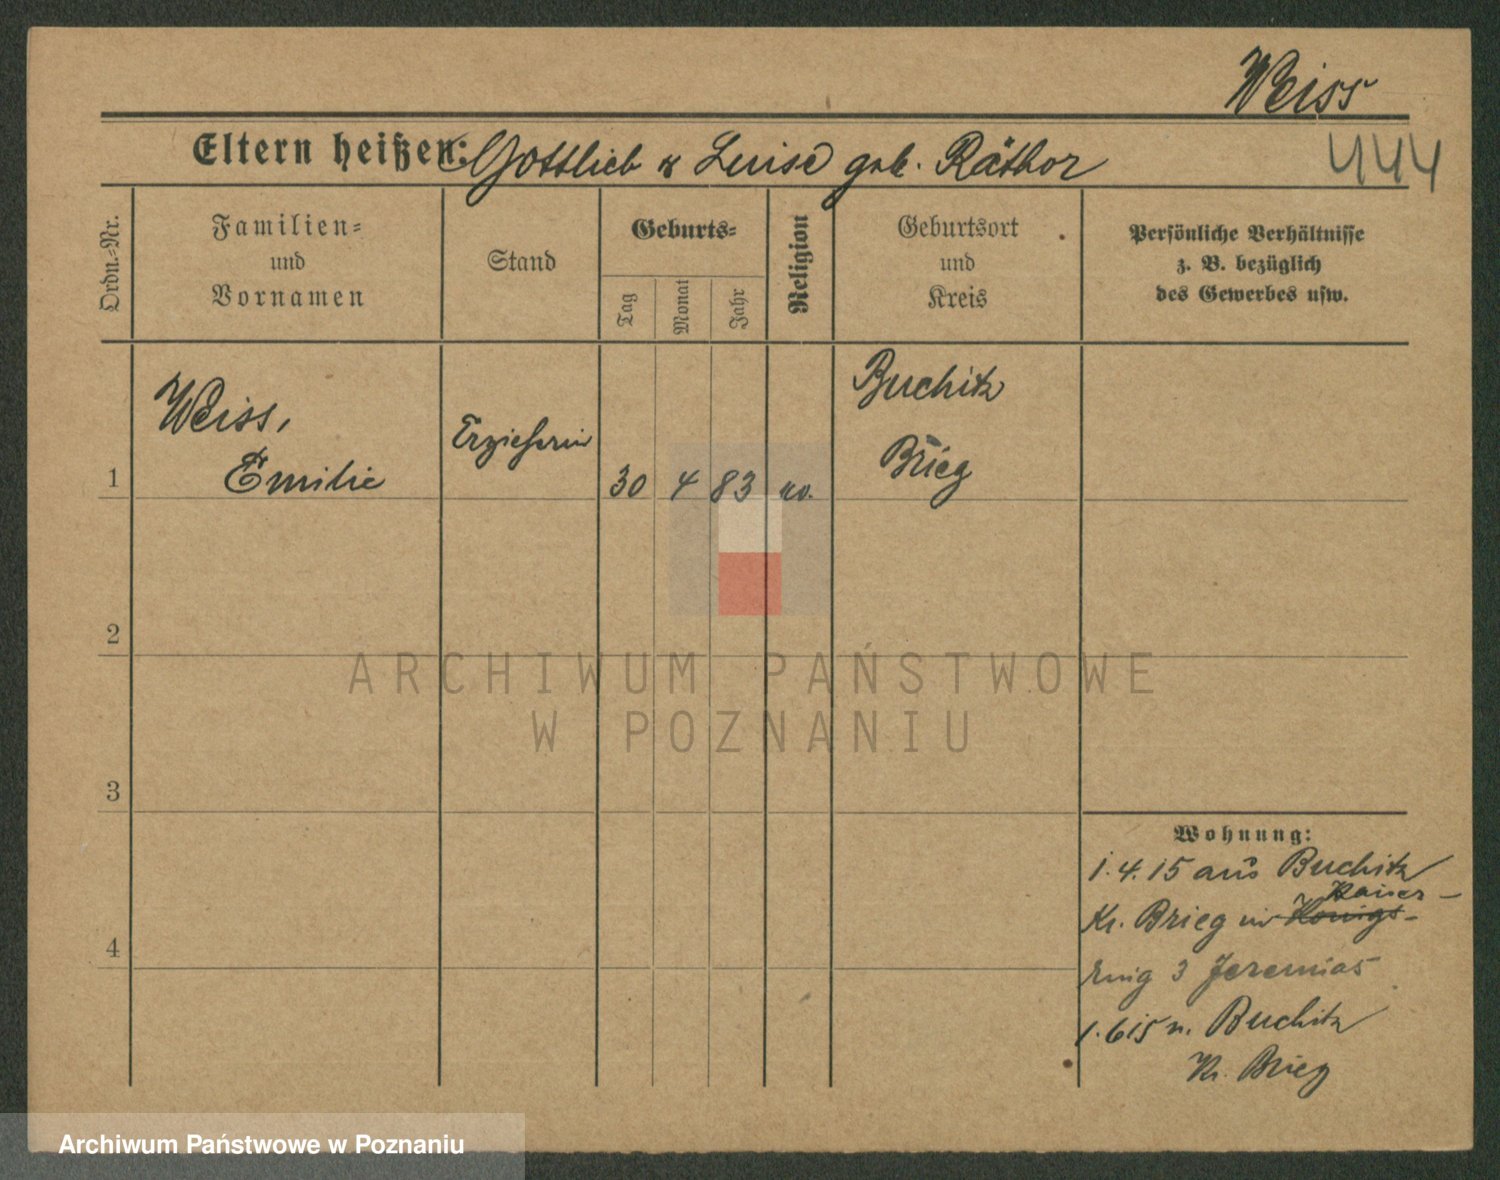 Weiss
444
Eltern heißen: Gottlieb u Luise geb. Räthor
Ordn.-Nr.
Familien-
und
Vornamen
Stand
Geburts-
Tag
Monat
Jahr
Religion
Geburtsort
und
Kreis
Persönliche Verhältnisse
z. B. bezüglich
des Gewerbes usw.
1
Weiss,
Emilie
Erzieherin
30 4 83 ev.
Buchitz
Brieg
2
3
4
Wohnung:
1.4.15 aus Buchitz
Kaiser-
Kr. Brieg in Königs-
ring 3 Jeremias
1.6 15 n. Buchitz
Kr. Brieg
ARCHIWUM PAŃSTWOWE
W POZNANIU
Archiwum Państwowe w Poznaniu